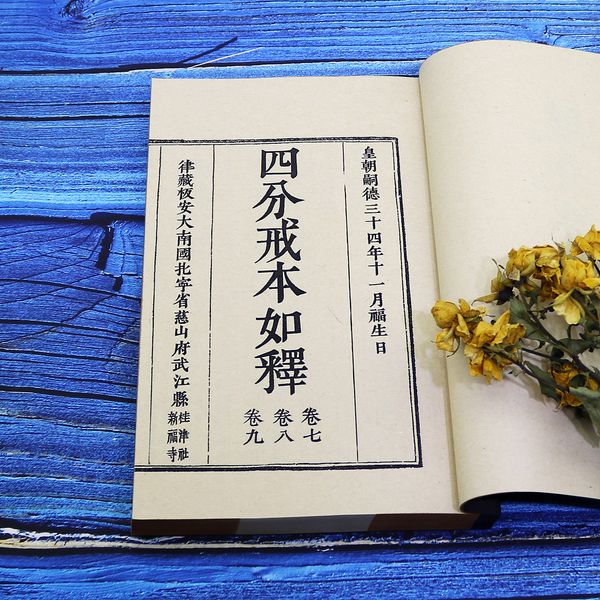 皇朝嗣德三十四年十一月福生日
四分戒本如釋
卷七
卷八
卷九
律藏板安大南國北寧省慈山府武江縣
桂津社
新福寺